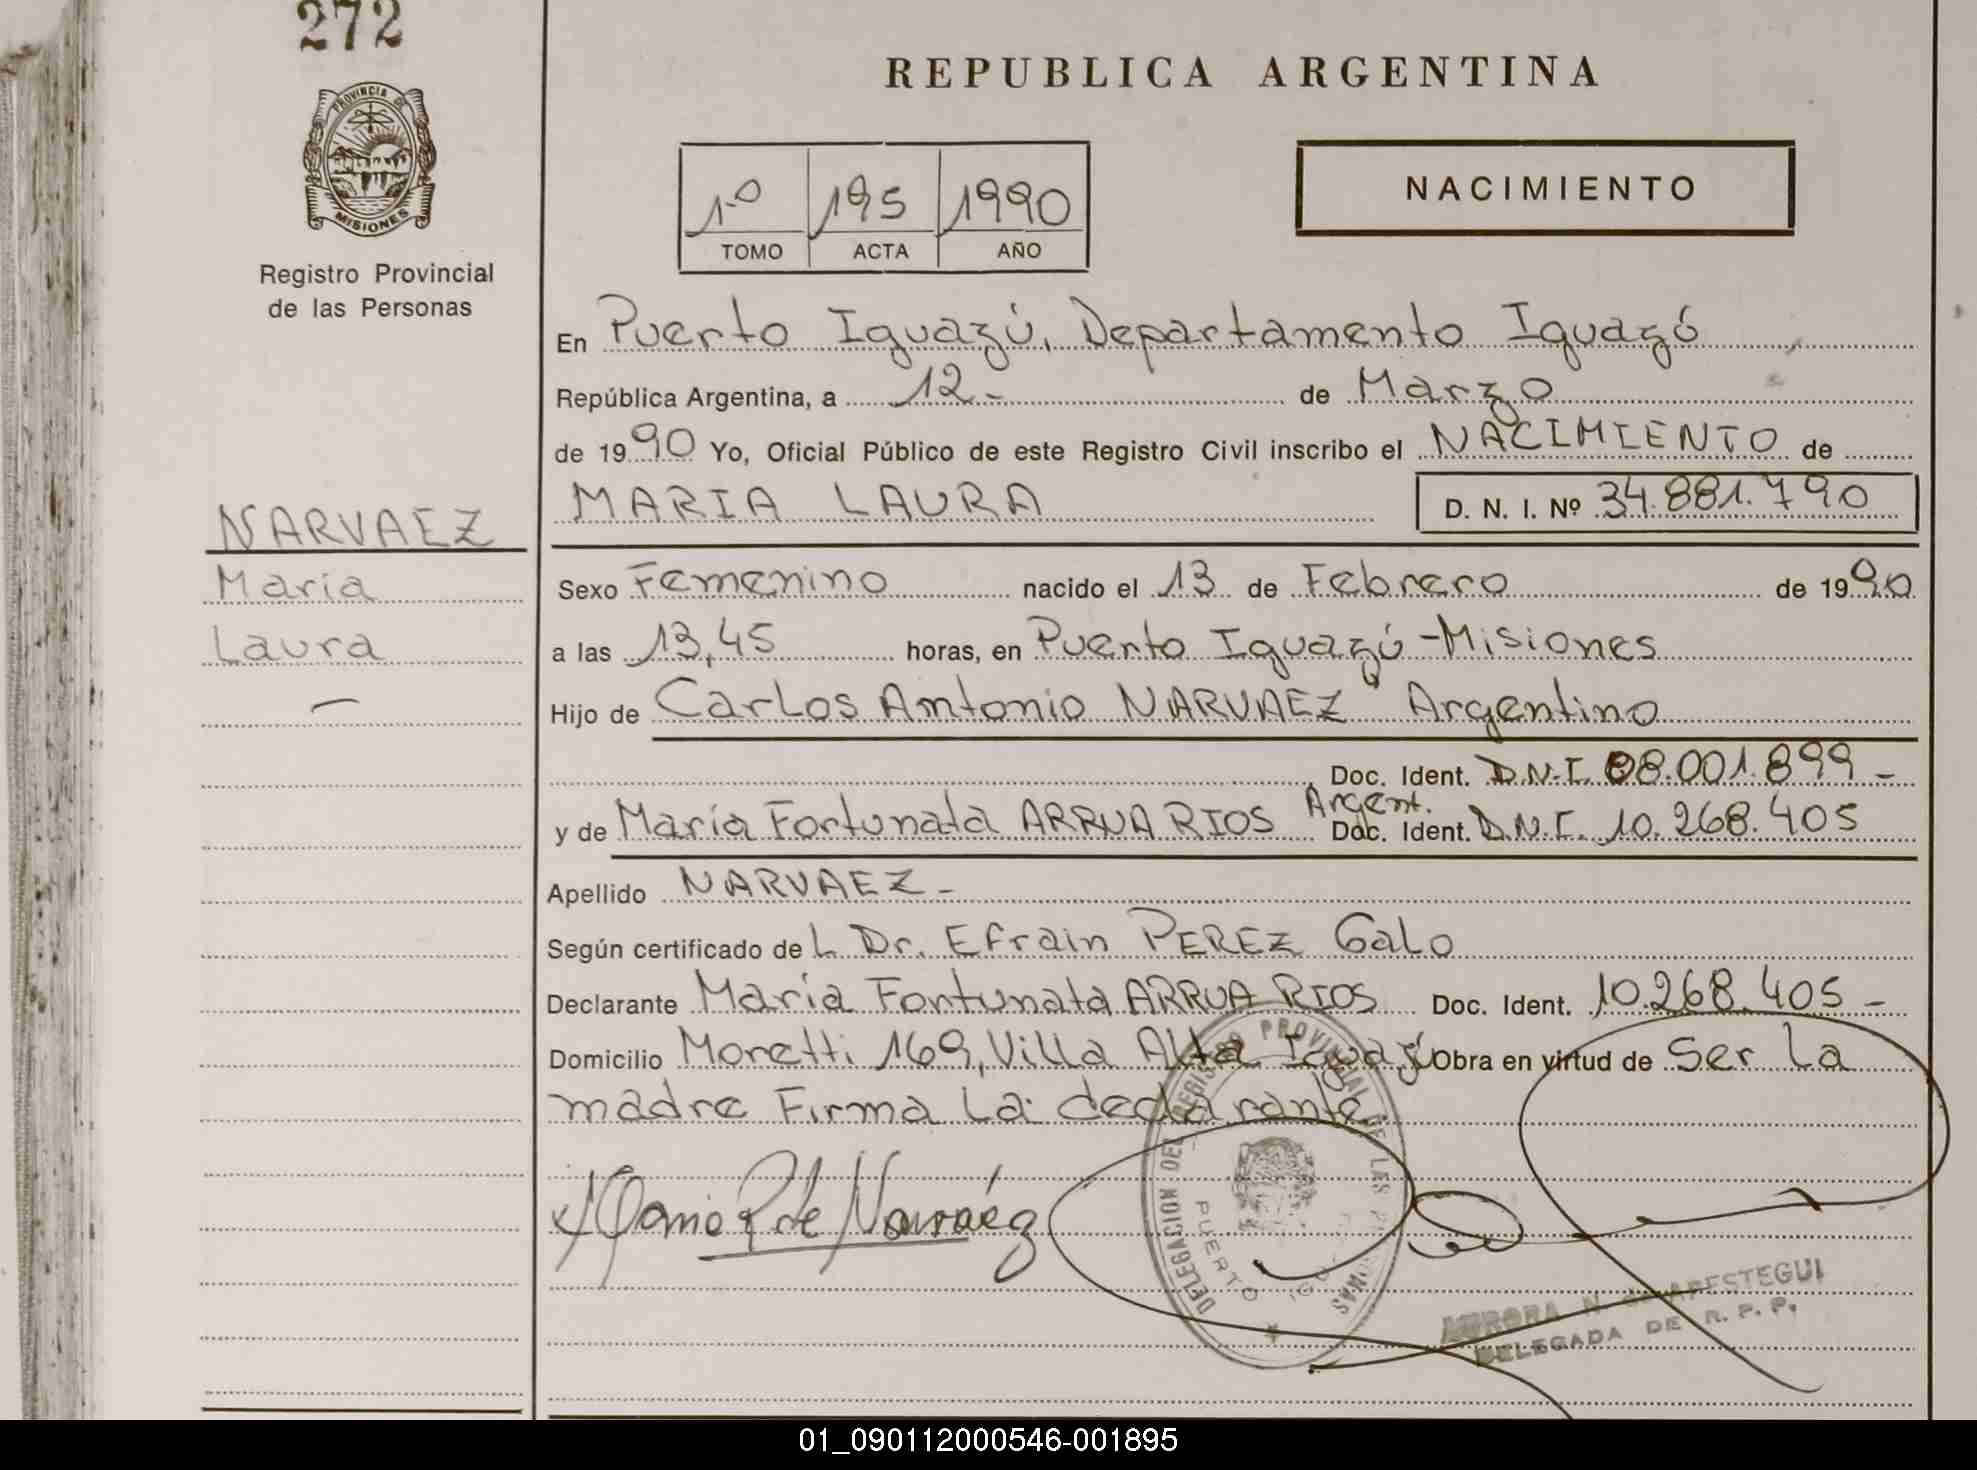 272
PROVINCIA DE
MISIONES
Registro Provincial
de las Personas
NARVAEZ
Maria
Laura
REPUBLICA ARGENTINA
1º 195 1990
TOMO ACTA AÑO
NACIMIENTO
En Puerto Iguazú, Departamento Iguazú
República Argentina, a 12- de Marzo
de 1990 Yo, Oficial Público de este Registro Civil inscribo el NACIMIENTO de
MARIA LAURA D. N. I. Nº 34.881.790
Sexo Femenino nacido el 13 de Febrero de 1990
a las 13,45 horas, en Puerto Iguazú-Misiones
Hijo de Carlos Antonio NARVAEZ Argentino
Doc. Ident. D.N.I. 08.001.899-
y de María Fortunata ARRUA RIOS Argent. Doc. Ident. D.N.I. 10.268.405
Apellido NARVAEZ-
Según certificado del Dr. Efrain PEREZ Galo
Declarante María Fortunata ARRUA RIOS Doc. Ident. 10.268.405-
Domicilio Moretti 169, Villa Alta Iguazú Obra en virtud de Ser La
madre Firma La declarante
de Narváez
DELEGACION DEL REGISTRO PROVINCIAL DE LAS PERSONAS
PUERTO
AURORA N.
DELEGADA DE R. P. P.
01_090112000546-001895